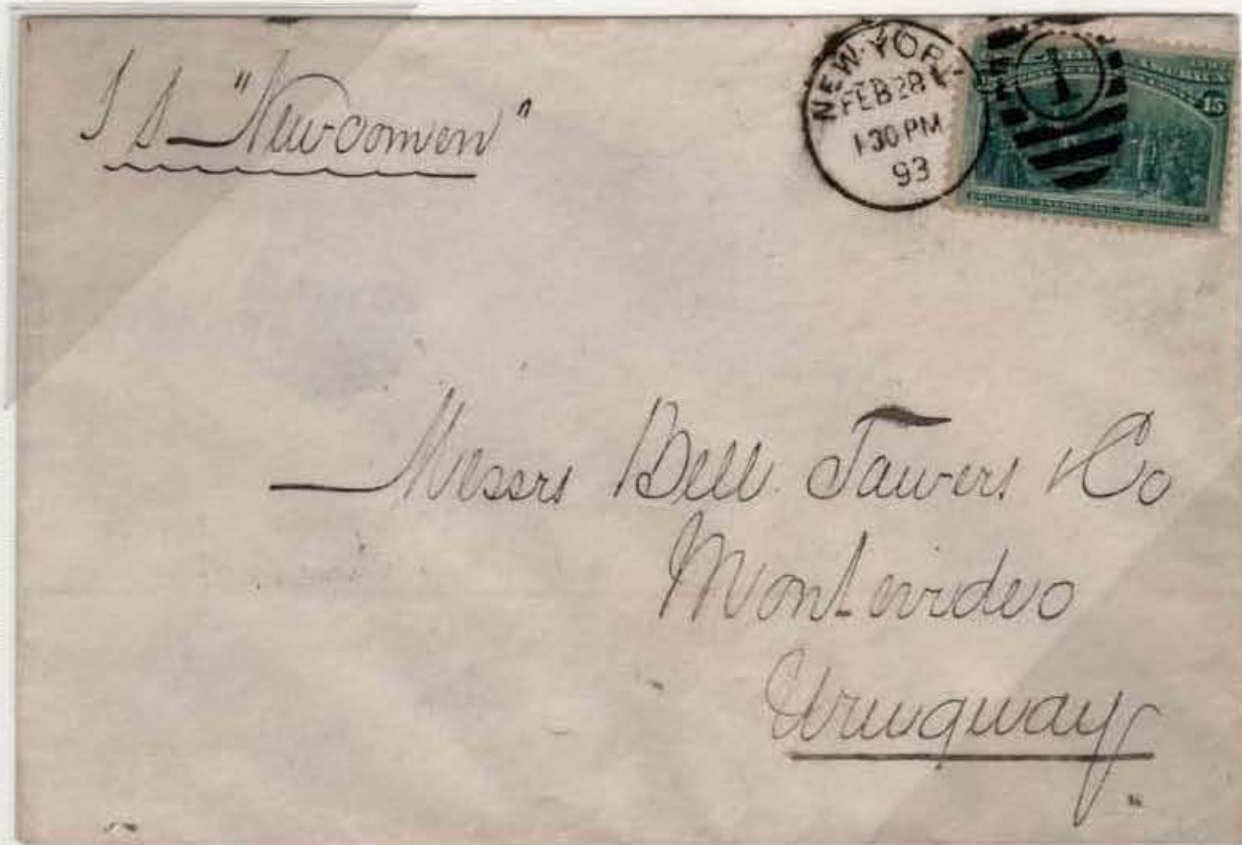 S S "Newcomen"
NEW-YORK
FEB 28
1 30 PM
93
1
15
Messrs Bell Towers & Co
Montevideo
Uruguay